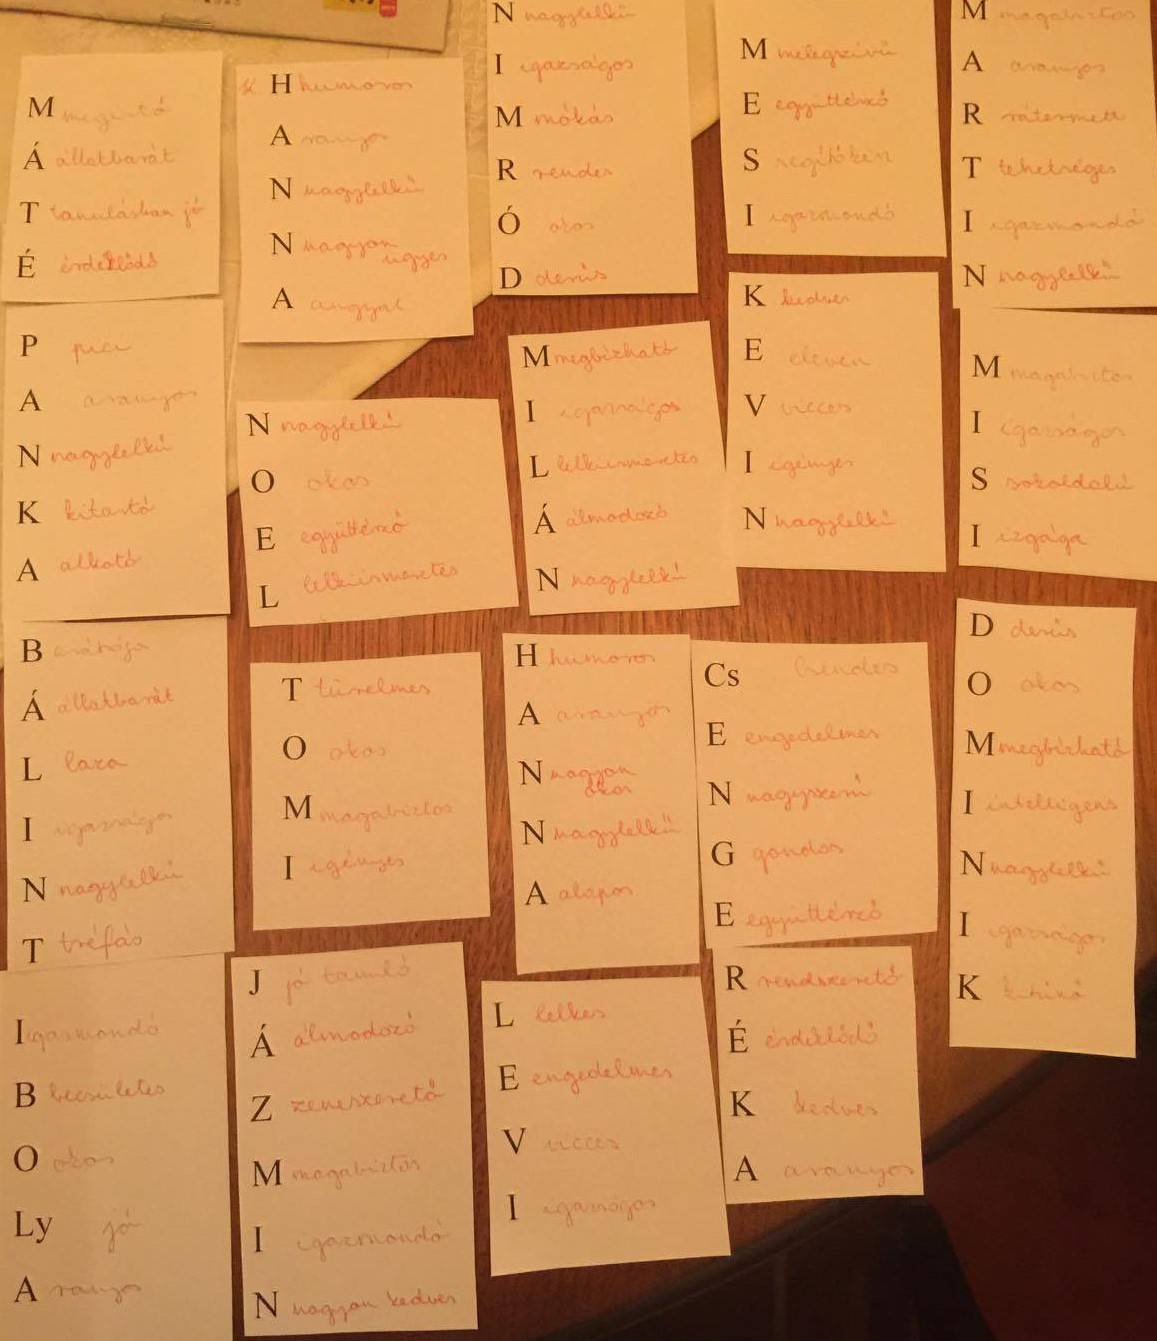 M
Á állatbarát
T tanulásban jó
É érdeklődő
H humoros
A ranyos
N nagylelkű
N nagyon ügyes
A angyal
N nagylelkű
I igazságos
M mókás
R rendes
Ó okos
D derűs
M melegszívű
E együttérző
S segítőkész
I igazmondó
M magabiztos
A aranyos
R rátermett
T tehetséges
I igazmondó
N nagylelkű
P pici
A aranyos
N nagylelkű
K kitartó
A alkotó
N nagylelkű
O okos
E együttérző
L lelkiismeretes
M megbízható
I igazságos
L lelkiismeretes
Á álmodozó
N nagylelkű
K kedves
E eleven
V vicces
I igényes
N nagylelkű
M magabiztos
I igazságos
S sokoldalú
I izgága
B arátságos
Á állatbarát
L laza
I igazságos
N nagylelkű
T tréfás
T türelmes
O okos
M magabiztos
I igényes
H humoros
A aranyos
N nagyon okos
N nagylelkű
A alapos
Cs csendes
E engedelmes
N nagyszerű
G gondos
E együttérző
D derűs
O okos
M megbízható
I intelligens
N nagylelkű
I igazságos
K kitűnő
I igazmondó
B becsületes
O okos
Ly jó
A ranyos
J jó tanuló
Á álmodozó
Z zeneszerető
M magabiztos
I igazmondó
N nagyon kedves
L lelkes
E engedelmes
V vicces
I igazságos
R rendszerető
É érdeklődő
K kedves
A aranyos